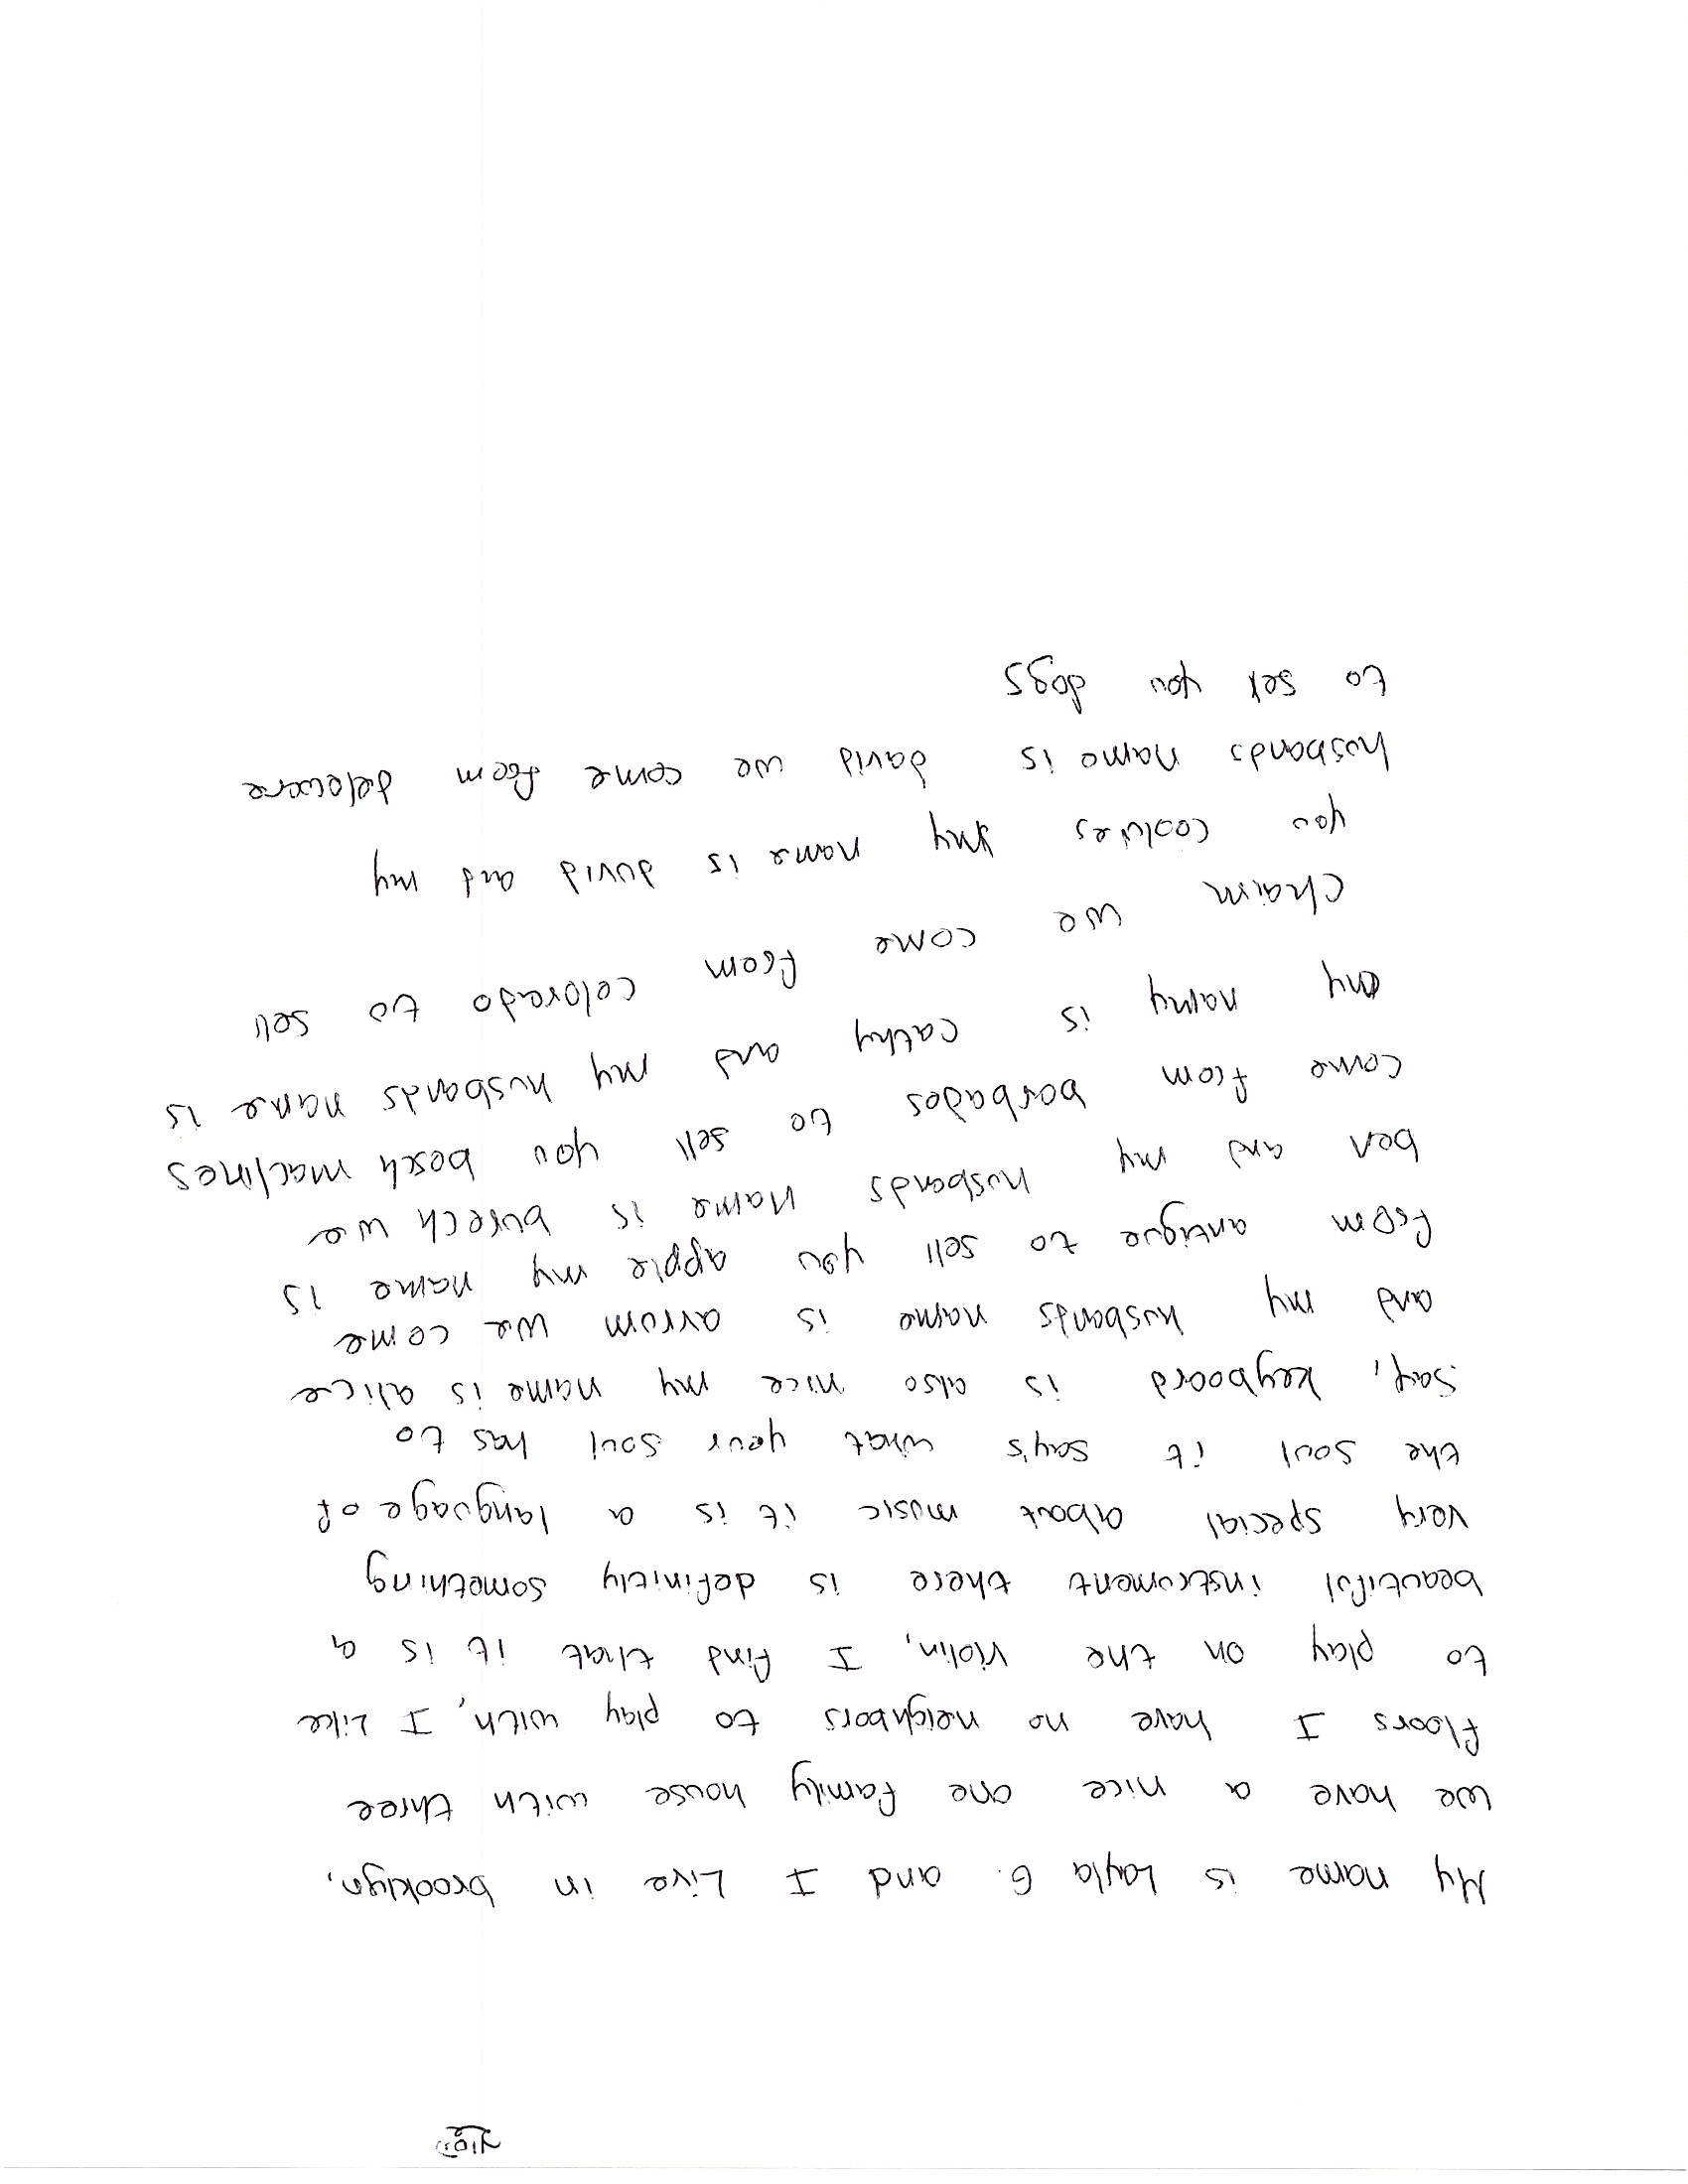 My name is Layla G. and I Live in brooklyn,
we have a nice one family house with three
floors I have no neighbors to play with, I Like
to play on the violin, I find that it is a
beautiful instrument there is definitly something
very special about music it is a language of
the soul it say's what your soul has to
say, keyboard is also nice my name is alice
and my husbands name is avrom we come
from antique to sell you apple my name is
ben and my husbands name is burech we
come from barbados to sell you bosch machines
my namy is cathy and my husbands name is
chaim we come from colorado to sell
you cookies my name is duvid and my
husbands name is david we come from delaware
to sell you dogs